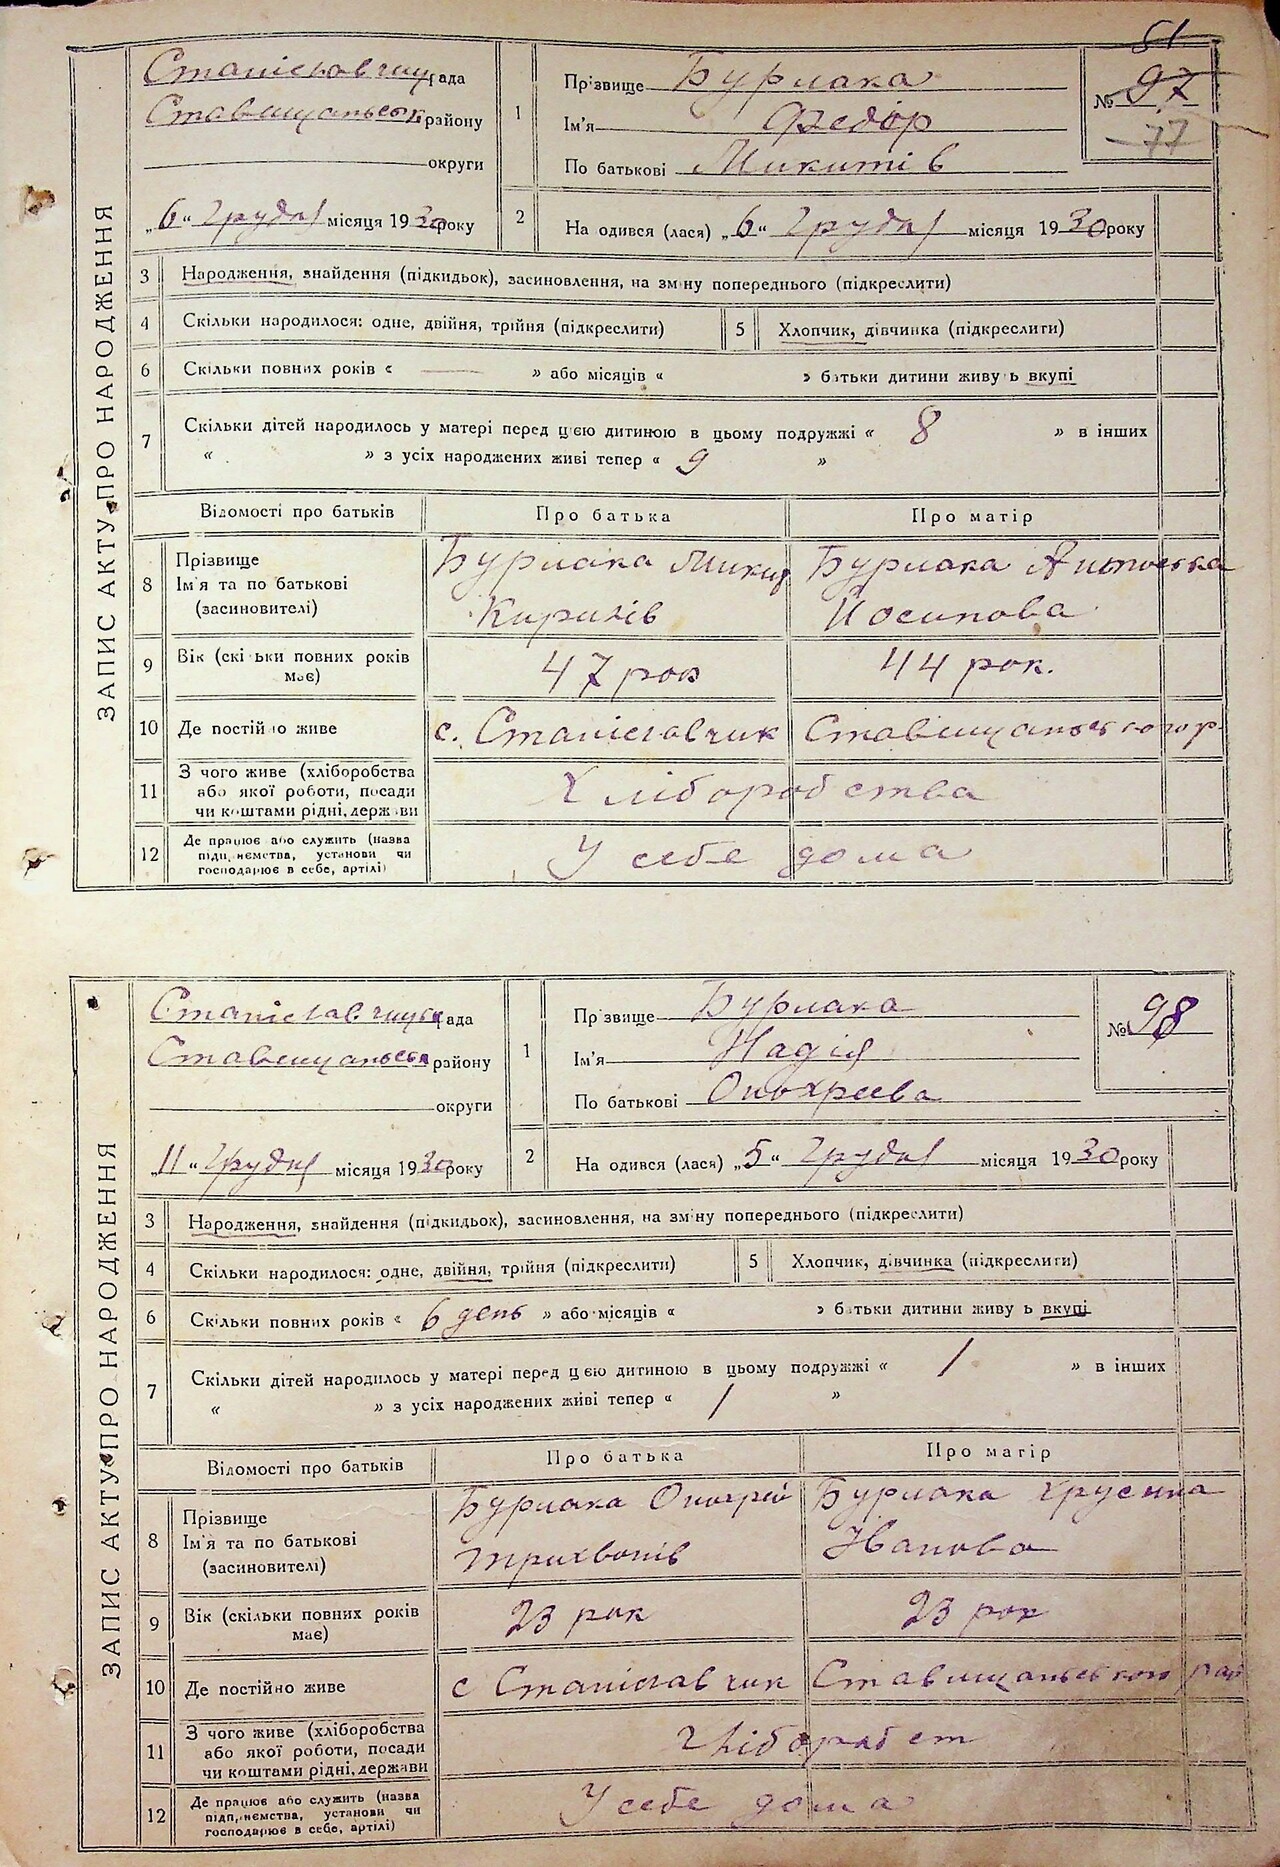 51
ЗАПИС АКТУ ПРО НАРОДЖЕННЯ
Станіславчицрада
Ставищанськ району
округи
„6“ Грудня місяця 1930 року
1
Прізвище Бурлака
Ім'я Федір
По батькові Микитів
№ 97
77
2
На одився (лася) „6“ Грудня місяця 1930 року
3 Народження, знайдення (підкидьок), засиновлення, на зміну попереднього (підкреслити)
4 Скільки народилося: одне, двійня, трійня (підкреслити) 5 Хлопчик, дівчинка (підкреслити)
6 Скільки повних років « — » або місяців « » батьки дитини живу ь вкупі
7 Скільки дітей народилось у матері перед цією дитиною в цьому подружжі « 8 » в інших
« » з усіх народжених живі тепер « 9 »
Відомості про батьків Про батька Про матір
8 Прізвище
Ім'я та по батькові
(засиновителі)
Бурлака Микит
Кирилів
Бурлака Антоська
Йосипова
9 Вік (скільки повних років
має)
47 рок
44 рок.
10 Де постійно живе с. Станіславчик Ставищанського р.
11 З чого живе (хліборобства
або якої роботи, посади
чи коштами рідні, держави
Хліборобства
12 Де працює або служить (назва
підприємства, установи чи
господарює в себе, артілі)
У себе дома
ЗАПИС АКТУ ПРО НАРОДЖЕННЯ
Станіславчицька рада
Ставищанськ району
округи
„11“ Грудня місяця 1930 року
1
Прізвище Бурлака
Ім'я Надія
По батькові Онохреєва
№ 98
2
На одився (лася) „5“ Грудня місяця 1930 року
3 Народження, знайдення (підкидьок), засиновлення, на зміну попереднього (підкреслити)
4 Скільки народилося: одне, двійня, трійня (підкреслити) 5 Хлопчик, дівчинка (підкреслити)
6 Скільки повних років « 6 день » або місяців « » батьки дитини живу ь вкупі
7 Скільки дітей народилось у матері перед цією дитиною в цьому подружжі « 1 » в інших
« » з усіх народжених живі тепер « 1 »
Відомості про батьків Про батька Про матір
8 Прізвище
Ім'я та по батькові
(засиновителі)
Бурлака Онохрей
Трихвонів
Бурлака Хрусина
Іванова
9 Вік (скільки повних років
має)
23 рок
23 рок
10 Де постійно живе с Станіславчик Ставищанського рай
11 З чого живе (хліборобства
або якої роботи, посади
чи коштами рідні, держави
Хлібороб ст
12 Де працює або служить (назва
підприємства, установи чи
господарює в себе, артілі)
У себе дома